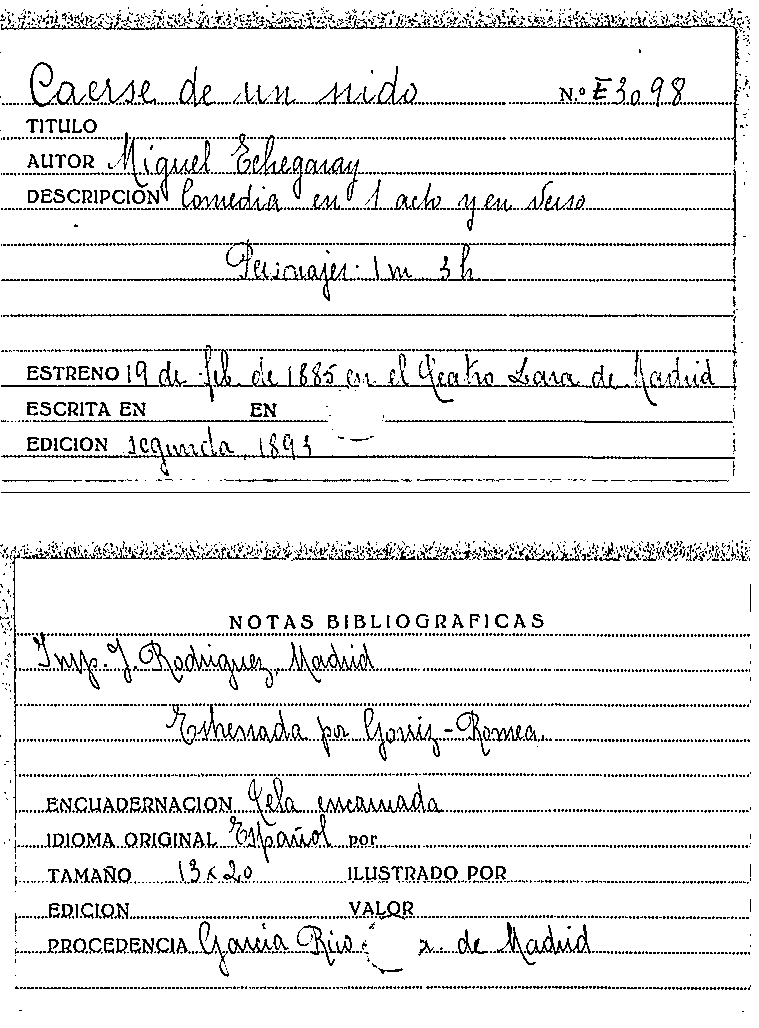 Caerse de un nido N.º E3098
TITULO
AUTOR Miguel Echegaray
DESCRIPCIÓN Comedia en 1 acto y en verso
Personajes. 1 m 3 h
ESTRENO 19 de feb. de 1885 en el Teatro Lara de Madrid
ESCRITA EN EN
EDICION segunda, 1893
NOTAS BIBLIOGRAFICAS
Imp. J. Rodriguez, Madrid
Estrenada por Gorriz-Romea.
ENCUADERNACION Tela encarnada
IDIOMA ORIGINAL Español por
TAMAÑO 13x20 ILUSTRADO POR
EDICION VALOR
PROCEDENCIA Garcia Rico de Madrid